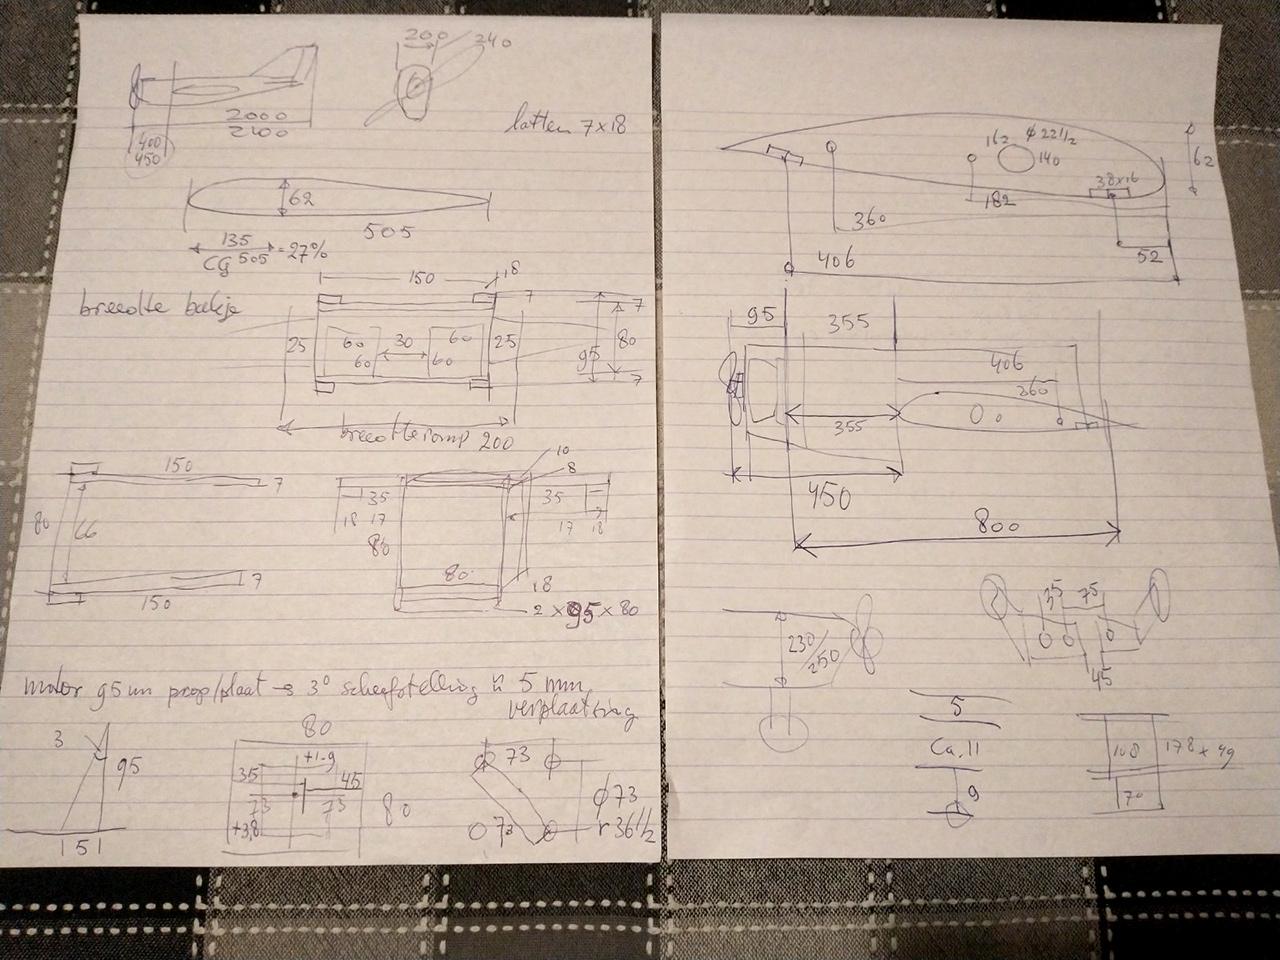 200
240
2000
2400
400
450
latten 7x18
62
505
135
CG 505 = 27%
150
18
breedte bakje
7
7
25
60
30
60
25
60
60
95
80
7
breedte romp 200
150
7
80
66
150
7
10
8
35
35
18 17
17 18
80
80
18
2 x 95 x 80
motor 95 mm prop/plaat → 3° scheefstelling is 5 mm
verplaatsing
3
95
151
80
+1.9
35
45
73
73
+3,8
80
73
73
ϕ73
r 36 1/2
162
ϕ 22 1/2
140
62
38x16
182
360
52
406
95
355
406
360
355
450
800
230/250
35
75
45
5
Ca. 11
9
108
178 x 49
70